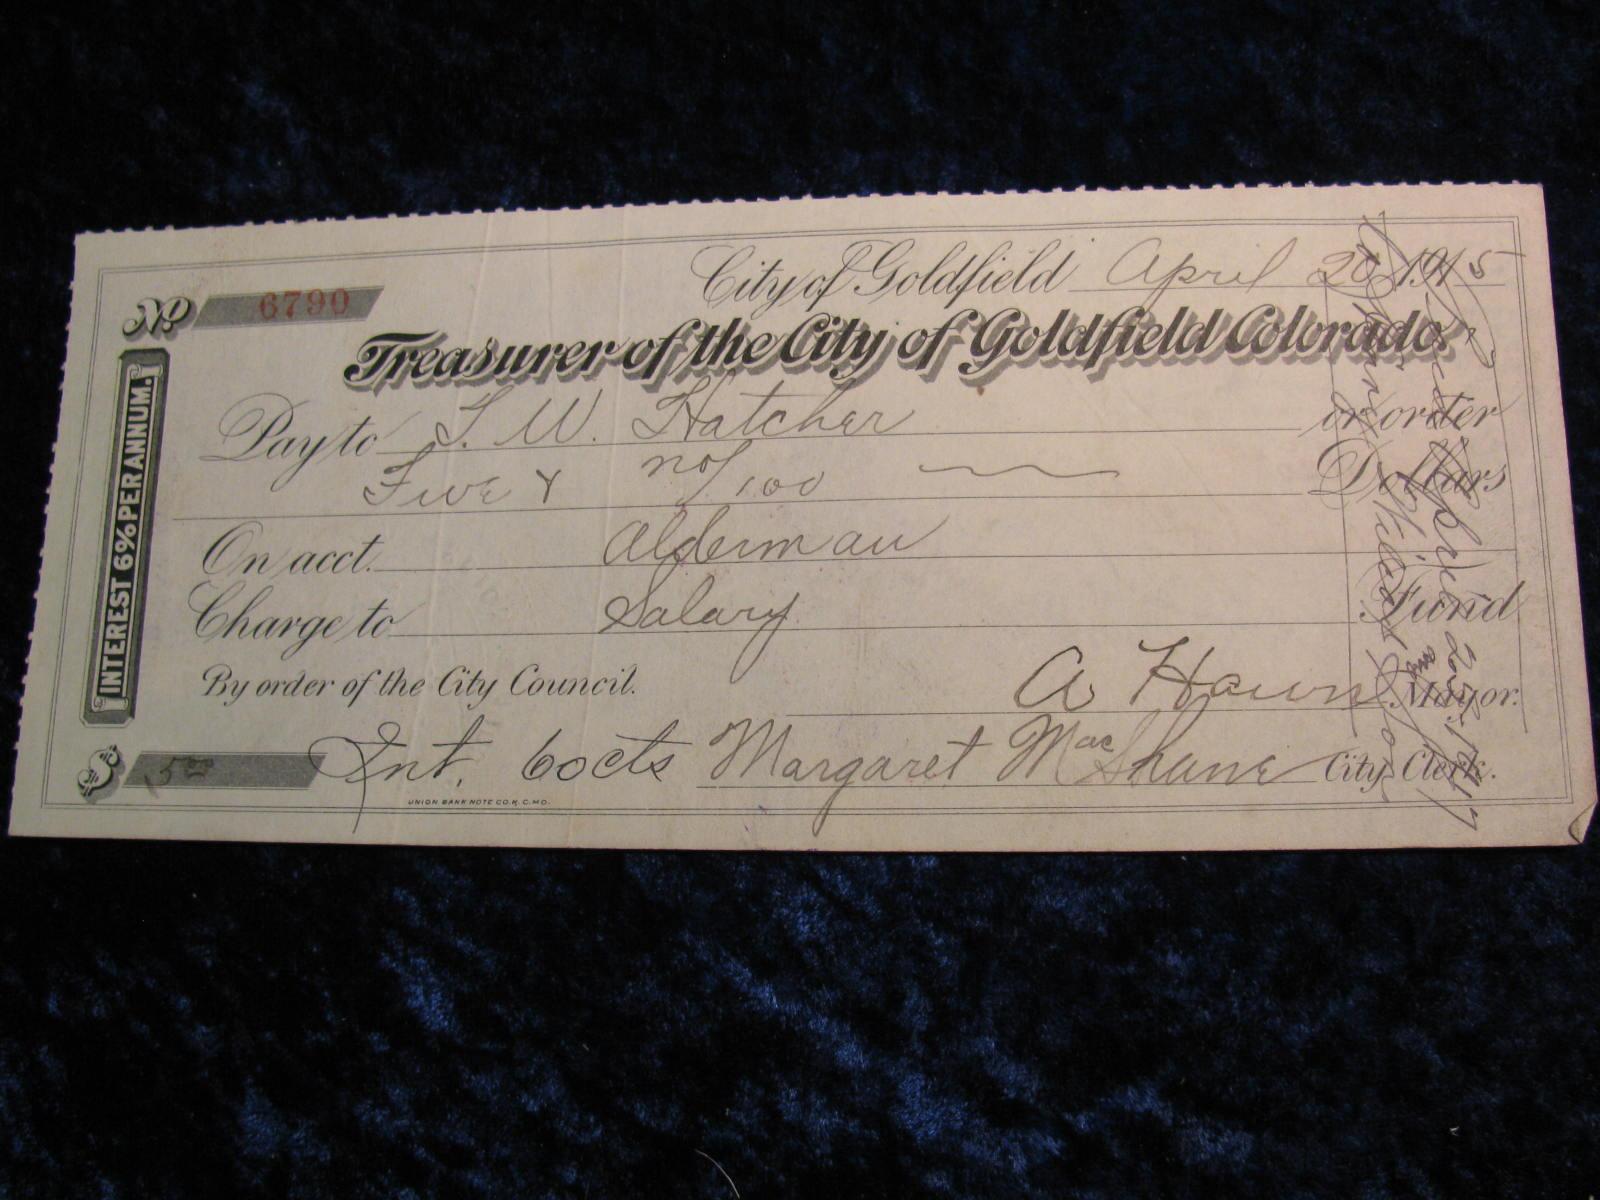 City of Goldfield April 20 1915
No. 6790
Treasurer of the City of Goldfield Colorado.
Pay to T. W. Hatcher or order
Five & no/100 Dollars
On acct. Alderman
Charge to Salary Fund
By order of the City Council. A Hawn Mayor.
$ 5.00 Int. 60cts Margaret MacShane City Clerk.
UNION BANK NOTE CO. K. C. MO.
INTEREST 6% PER ANNUM.
April 25 1917